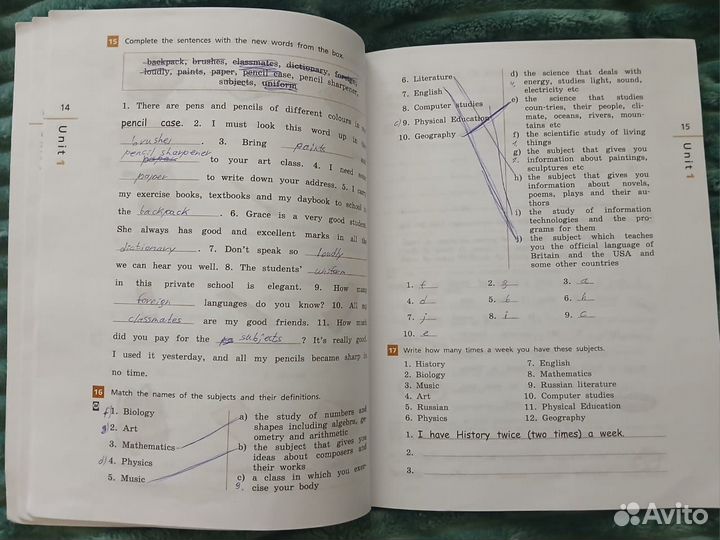 15 Complete the sentences with the new words from the box.
backpack, brushes, classmates, dictionary, foreign,
loudly, paints, paper, pencil case, pencil sharpener,
subjects, uniform
14
Unit 1
1. There are pens and pencils of different colours in my
pencil case. 2. I must look this word up in the
brushes. 3. Bring paints and
pencil sharpener
to your art class. 4. I need some
paper to write down your address. 5. I carry
my exercise books, textbooks and my daybook to school in
the backpack. 6. Grace is a very good student.
She always has good and excellent marks in all the
dictionary. 7. Don't speak so loudly
we can hear you well. 8. The students' uniform
in this private school is elegant. 9. How many
foreign languages do you know? 10. All my
classmates are my good friends. 11. How much
did you pay for the subjects? It's really good.
I used it yesterday, and all my pencils became sharp in
no time.
16 Match the names of the subjects and their definitions.
f) 1. Biology
g) 2. Art
3. Mathematics
d) 4. Physics
5. Music
a) the study of numbers and
shapes including algebra, ge-
ometry and arithmetic
b) the subject that gives you
ideas about composers and
their works
c) a class in which you exer-
cise your body
6. Literature
7. English
8. Computer studies
c) 9. Physical Education
10. Geography
d) the science that deals with
energy, studies light, sound,
electricity etc
e) the science that studies
coun-tries, their people, cli-
mate, oceans, rivers, moun-
tains etc
f) the scientific study of living
things
g) the subject that gives you
information about paintings,
sculptures etc
h) the subject that gives you
information about novels,
poems, plays and their au-
thors
i) the study of information
technologies and the pro-
grams for them
j) the subject which teaches
you the official language of
Britain and the USA and
some other countries
15
Unit 1
1. f 2. g 3. a
4. d 5. b 6. h
7. j 8. i 9. c
10. e
17 Write how many times a week you have these subjects.
1. History
2. Biology
3. Music
4. Art
5. Russian
6. Physics
7. English
8. Mathematics
9. Russian literature
10. Computer studies
11. Physical Education
12. Geography
1. I have History twice (two times) a week.
2.
3.
Avito